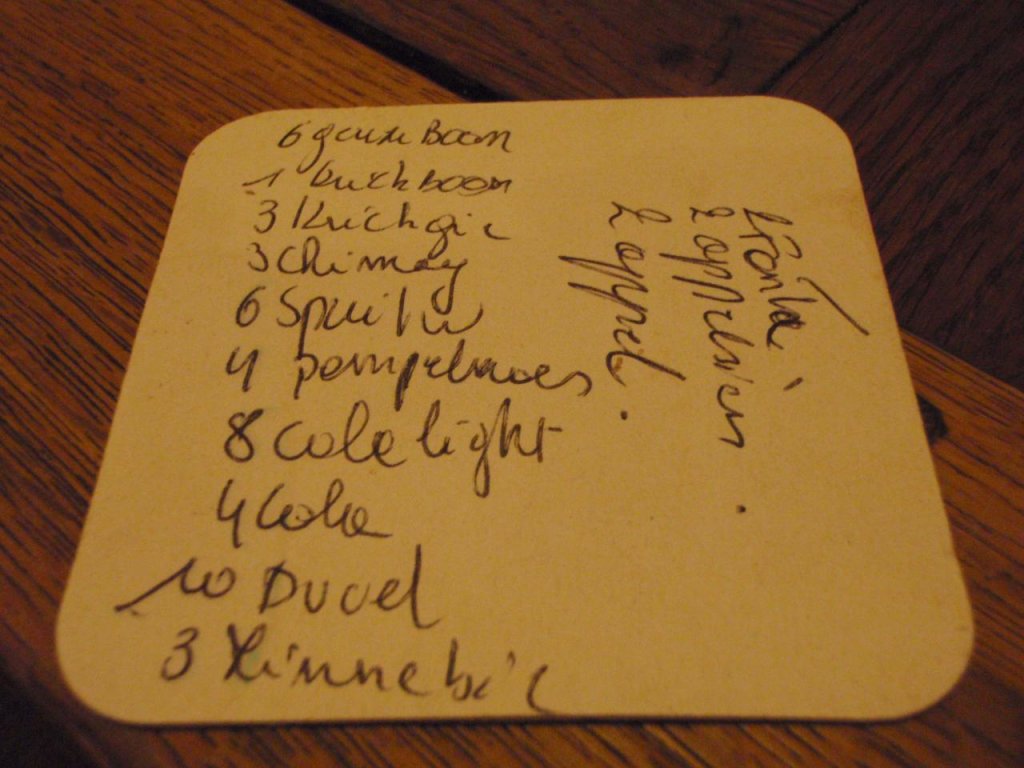 6 geuze Boon
1 kriekboon
3
3 chimay
6
4 pompelmoes
8 cola light
4 Cola
10 Duvel
3 Zinnebi
2 appelsien
2 appel.